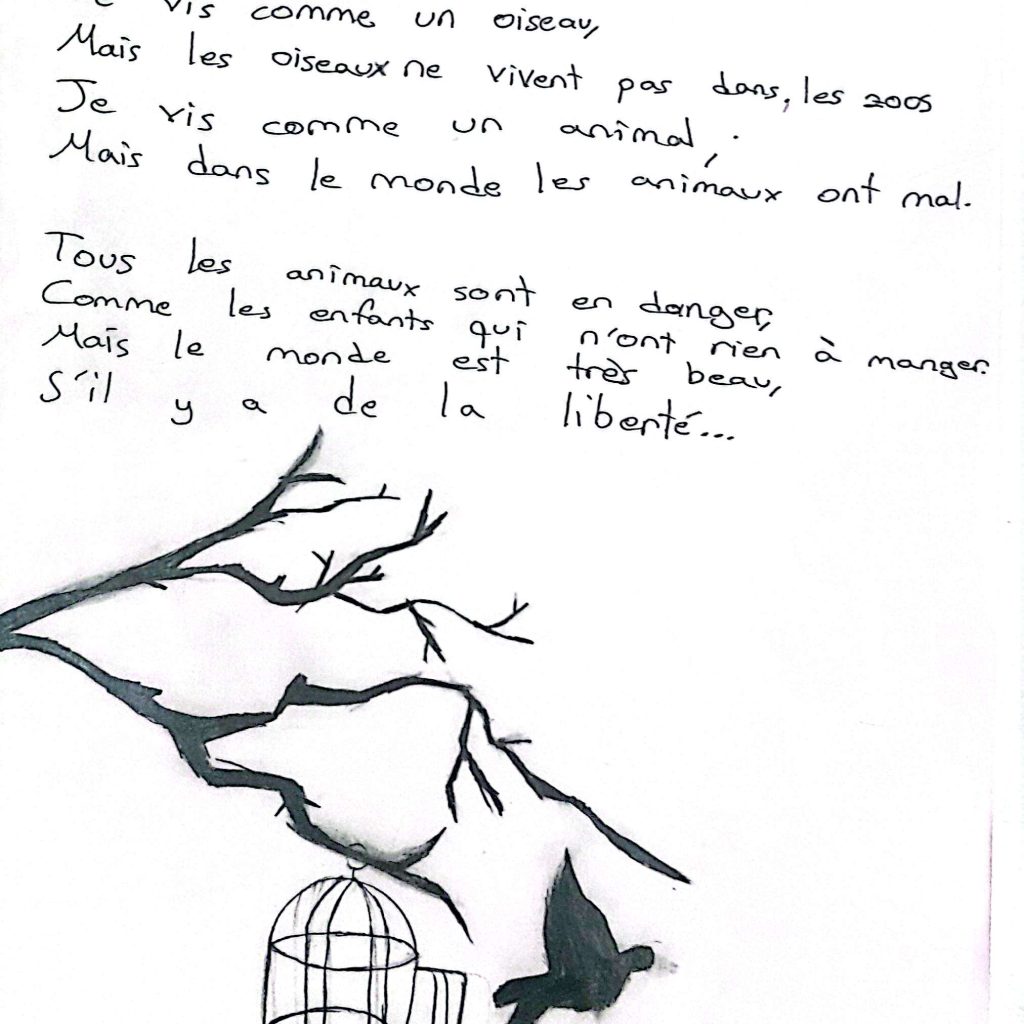 Je vis comme un oiseau,
Mais les oiseaux ne vivent pas dans, les zoos
Je vis comme un animal,.
Mais dans le monde les animaux ont mal.
Tous les animaux sont en danger,
Comme les enfants qui n'ont rien à manger.
Mais le monde est très beau,
S'il y a de la liberté...